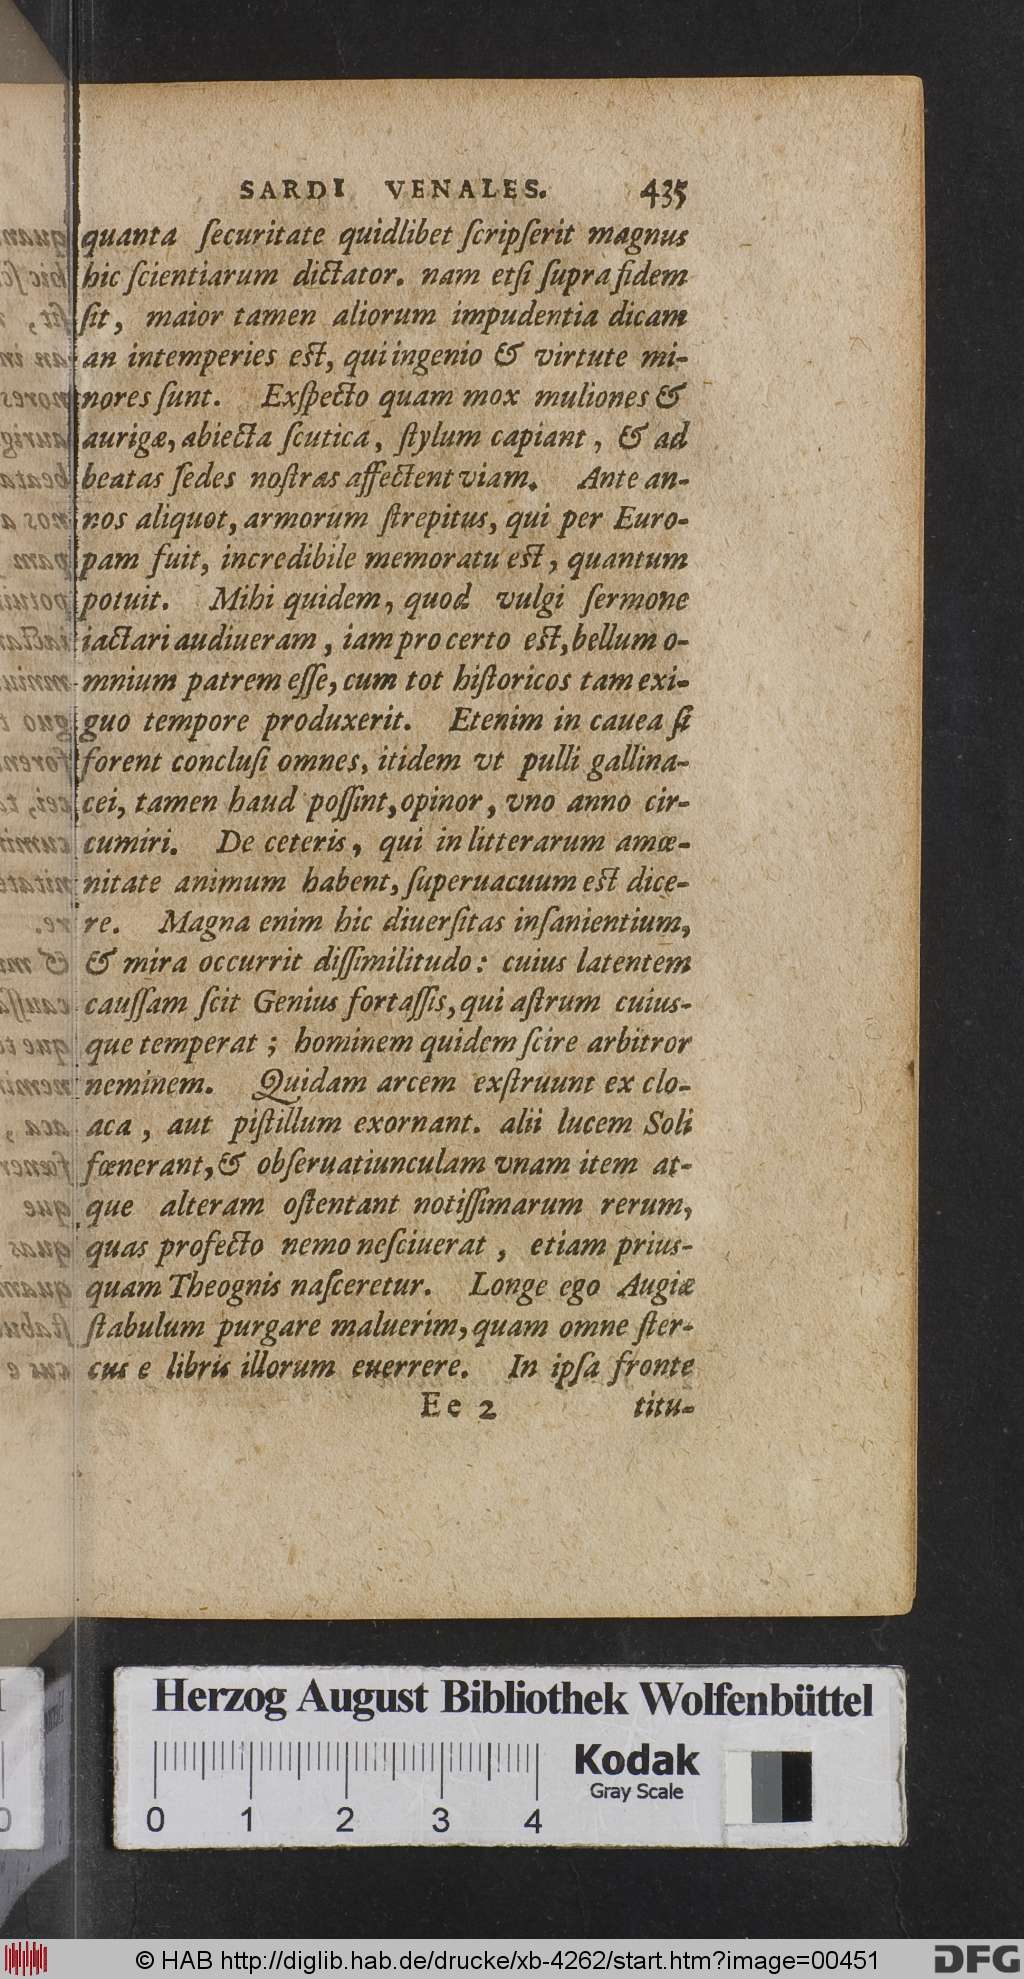 SARDI VENALES. 435
quanta ſecuritate quidlibet ſcripſerit magnus
hic ſcientiarum dictator. nam etſi ſupra fidem
ſit, maior tamen aliorum impudentia dicam
an intemperies eſt, qui ingenio & virtute mi-
nores ſunt. Exſpecto quam mox muliones &
aurigæ, abiecta ſcutica, ſtylum capiant, & ad
beatas ſedes noſtras affectent viam. Ante an-
nos aliquot, armorum ſtrepitus, qui per Euro-
pam fuit, incredibile memoratu eſt, quantum
potuit. Mihi quidem, quod vulgi ſermone
iactari audiueram, iam pro certo eſt, bellum o-
mnium patrem eſſe, cum tot hiſtoricos tam exi-
guo tempore produxerit. Etenim in cauea ſi
forent concluſi omnes, itidem vt pulli gallina-
cei, tamen haud poſſint, opinor, vno anno cir-
cumiri. De ceteris, qui in litterarum amœ-
nitate animum habent, ſuperuacuum eſt dice-
re. Magna enim hic diuerſitas inſanientium,
& mira occurrit diſſimilitudo: cuius latentem
cauſſam ſcit Genius fortaſſis, qui aſtrum cuius-
que temperat; hominem quidem ſcire arbitror
neminem. Quidam arcem exſtruunt ex clo-
aca, aut piſtillum exornant. alii lucem Soli
fœnerant, & obſeruatiunculam vnam item at-
que alteram oſtentant notiſſimarum rerum,
quas profecto nemo neſciuerat, etiam prius-
quam Theognis naſceretur. Longe ego Augiæ
ſtabulum purgare maluerim, quam omne ſter-
cus e libris illorum euerrere. In ipſa fronte
Ee 2 titu-
Herzog August Bibliothek Wolfenbüttel
Kodak
Gray Scale
0 1 2 3 4
© HAB http://diglib.hab.de/drucke/xb-4262/start.htm?image=00451
DFG